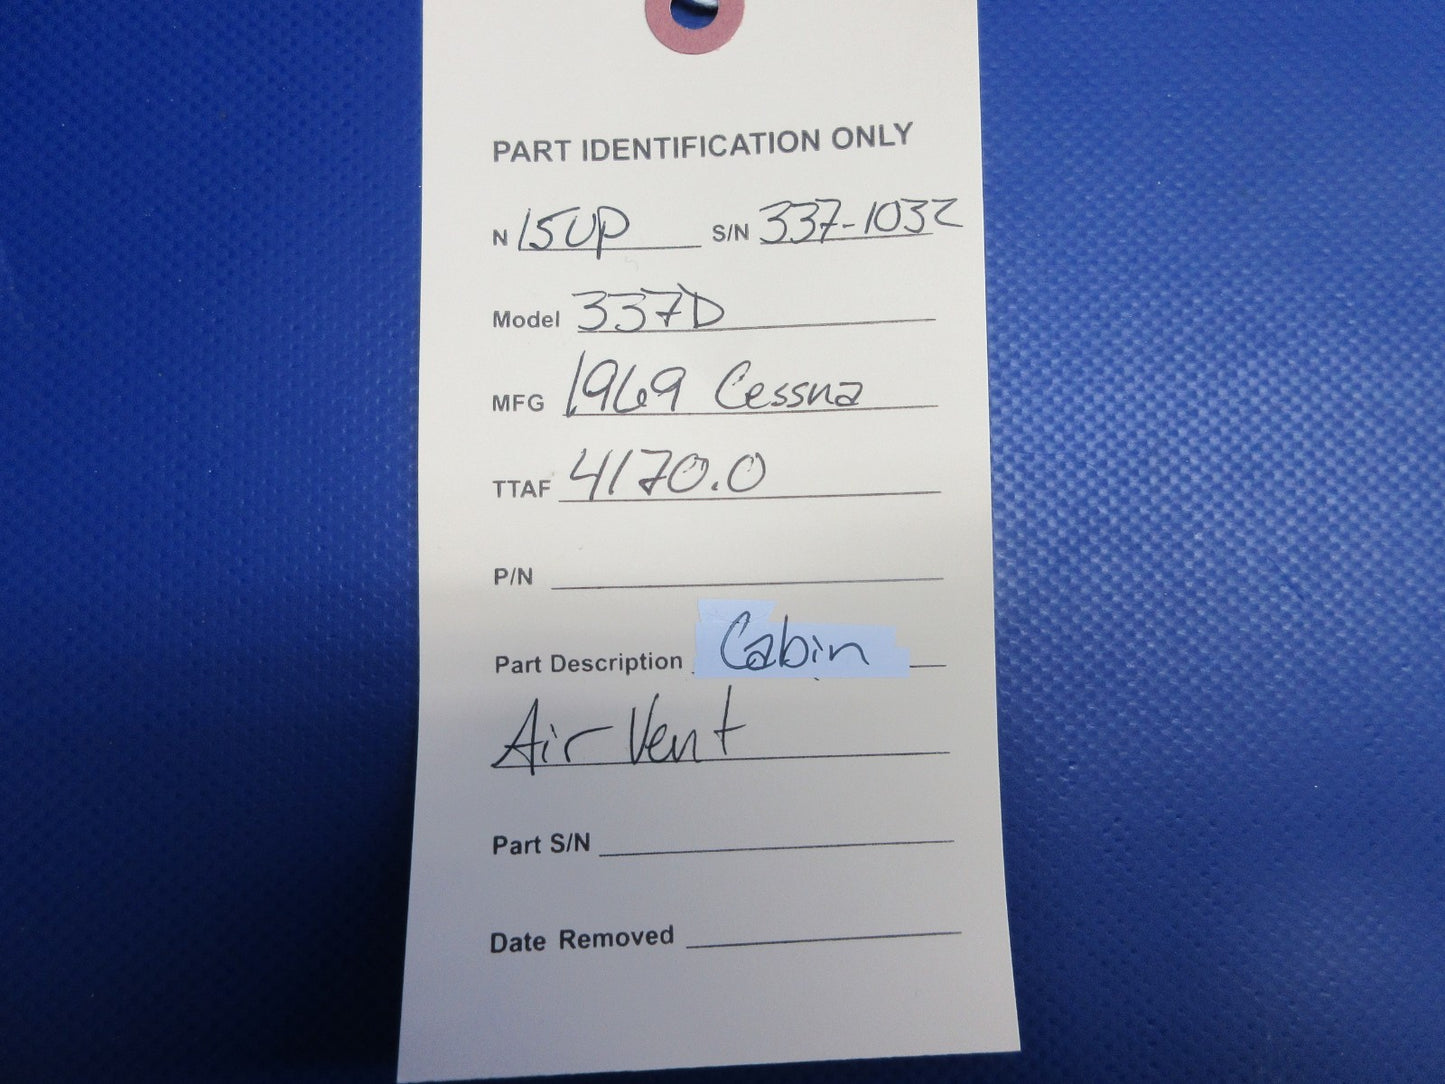 PART IDENTIFICATION ONLY
N 15UP S/N 337-1032
Model 337D
MFG 1969 Cessna
TTAF 4170.0
P/N
Part Description Cabin
Air Vent
Part S/N
Date Removed